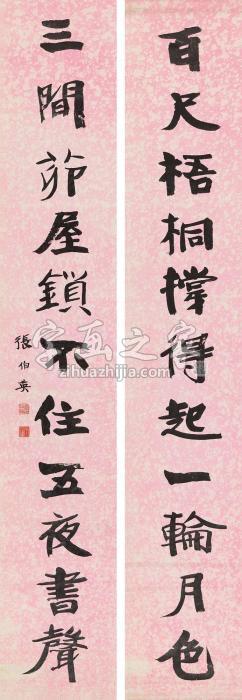 百尺梧桐撑得起一輪月色
三間茆屋鎖不住五夜書聲
張伯英
字画之家
zihuazhijia.com